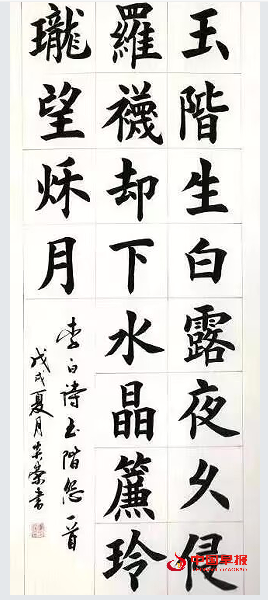 玉階生白露夜久侵
羅襪却下水晶簾玲
瓏望秌月
李白詩玉階怨一首
戊戌夏月榮書